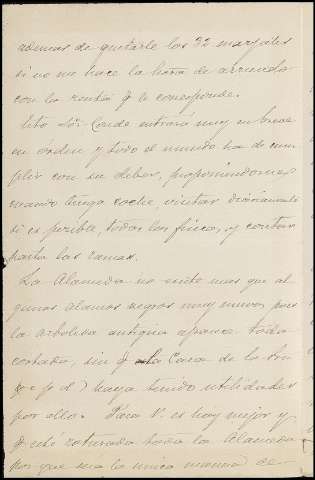 ademas de quitarle los 32 marjales
si no me hace la hoja de arriendo
con la renta q le corresponde.
Sor Conde entrará muy en breve
en orden y todo el mundo ha de cum
plir con su deber, proponiendome
cuando tenga coche, visitar diariamente
si es posible, todas las fincas, y contar
hasta las ramas.
La Alameda no existe mas que al
gunos alamos negros muy nuevos, pues
la arboleda antigua aparece toda
cortada, sin q la Casa de la
haya tenido utilidades
por ello. Para V. es hoy mejor y
q esté roturada toda la Alameda
por que sea la unica manera de